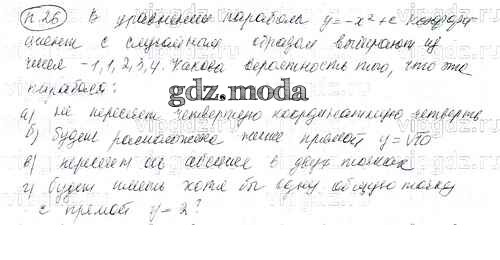 п.26 В уравнении параболы y=-x²+c коэффи-
циент с случайным образом выбирают из
чисел -1,1,2,3,4. Какова вероятность того, что эта
парабола:
gdz.moda
а) не пересечет четвертую координатную четверть
б) будет расположена ниже прямой y=√10
в) пересечет ось абсцисс в двух точках
г) будет иметь хотя бы одну общую точку
с прямой y=2?